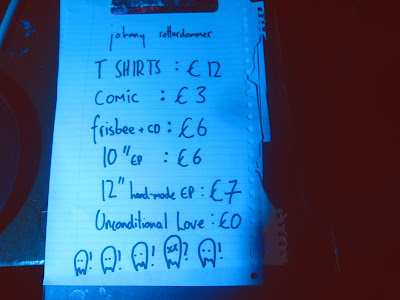 johnny rotterdammer
T SHIRTS : £12
COMIC : £3
frisbee + CD : £6
10" EP : £6
12" hand-made EP : £7
Unconditional Love : £0
! ! ! ? !